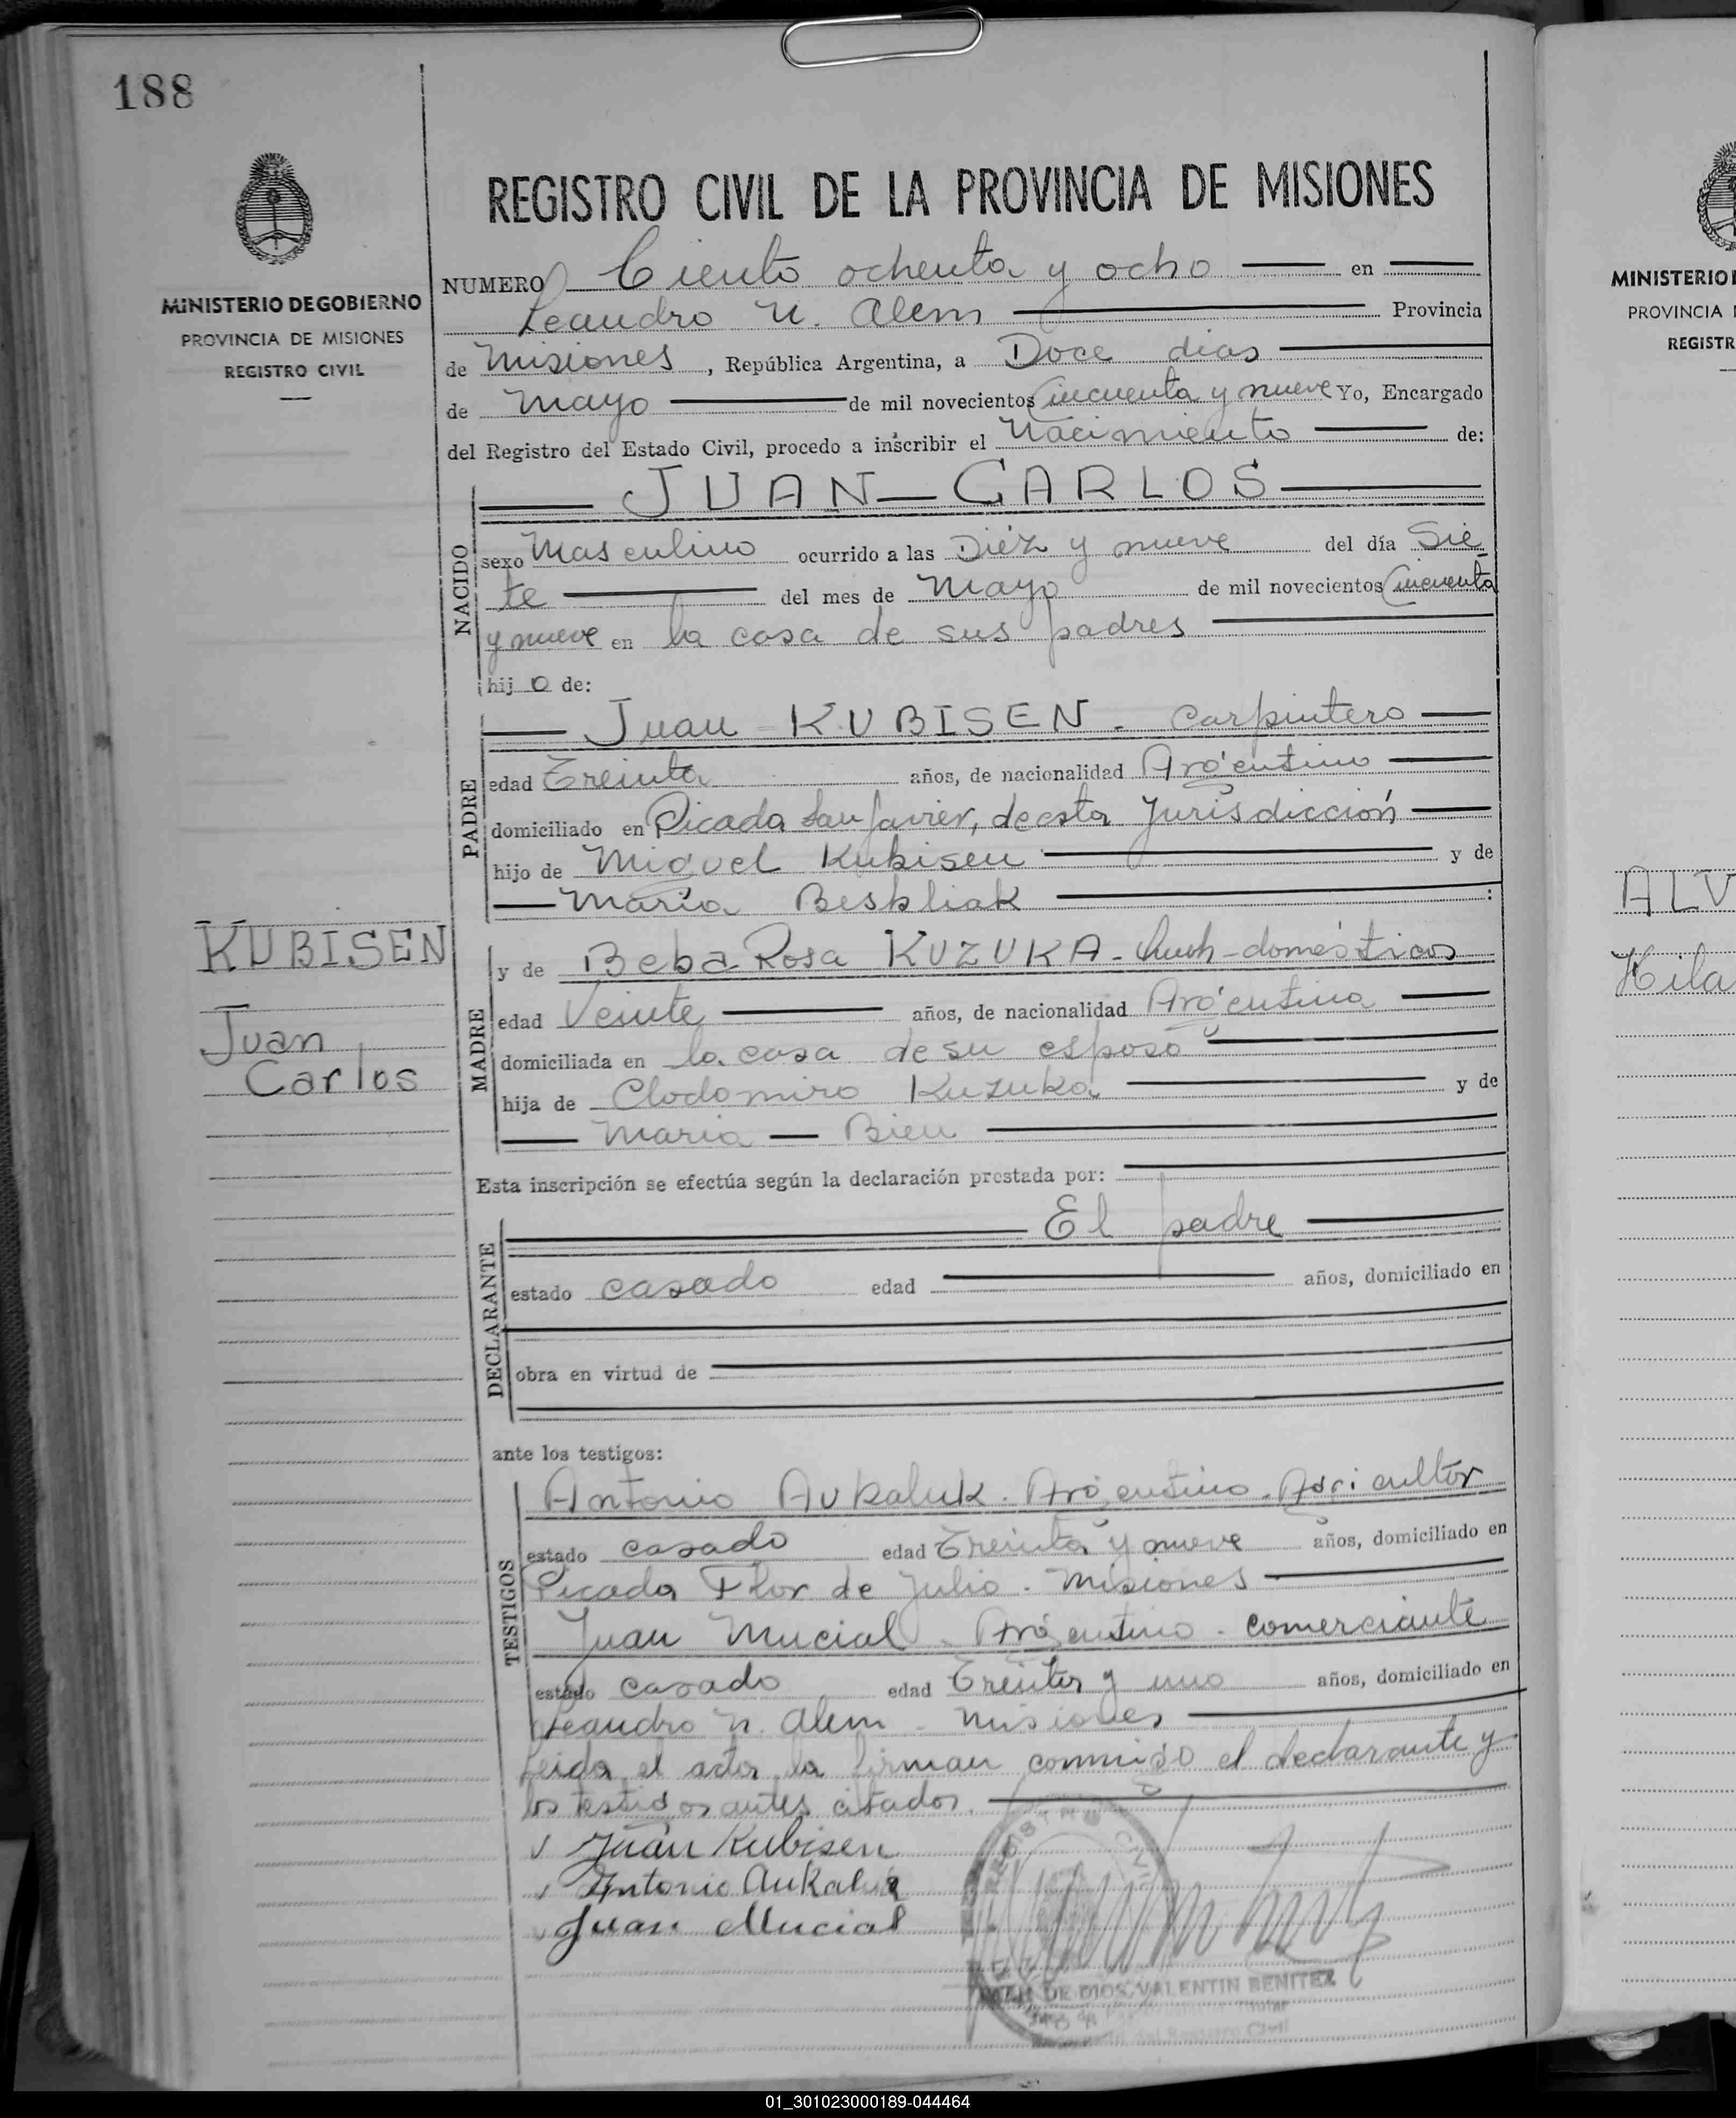 188
REGISTRO CIVIL DE LA PROVINCIA DE MISIONES
MINISTERIO DE GOBIERNO
PROVINCIA DE MISIONES
REGISTRO CIVIL
NUMERO Ciento ochenta y ocho en
Leandro N. Alem Provincia
de Misiones, República Argentina, a Doce dias
de Mayo de mil novecientos Cincuenta y nueve Yo, Encargado
del Registro del Estado Civil, procedo a inscribir el Nacimiento de:
JUAN CARLOS
NACIDO
sexo Masculino ocurrido a las Diéz y nueve del día Sie
te del mes de Mayo de mil novecientos Cincuenta
y nueve en la casa de sus padres
hijo de:
Juan KUBISEN. Carpintero
PADRE
edad Treinta años, de nacionalidad Argentino
domiciliado en Picada San Javier, de esta Jurisdicción
hijo de Miguel Kubisen y de
Maria Beskliak :
KUBISEN
Juan
Carlos
y de Beba Rosa KUZUKA - domésticos
MADRE
edad Veinte años, de nacionalidad Argentina
domiciliada en la casa de su esposo
hija de Clodomiro Kuzuka y de
Maria Bieu
Esta inscripción se efectúa según la declaración prestada por:
El padre
DECLARANTE
estado casado edad años, domiciliado en
obra en virtud de
ante los testigos:
TESTIGOS
Antonio Aukaluk. Argentino. Agricultor
estado casado edad Treinta y nueve años, domiciliado en
Picada Flor de Julio. Misiones
Juan Mucial. Argentino. comerciante
estado casado edad Treinta y uno años, domiciliado en
Leandro N. Alem - Misiones
Leida el acta la firman conmigo el declarante y
los testigos antes citados.
Juan Kubisen
Antonio Aukaluk
Juan Mucial
REGISTRO CIVIL
DE DIOS VALENTIN BENITEZ
del Registro Civil
MINISTERIO
PROVINCIA
REGISTR
ALV
Hila
01_301023000189-044464